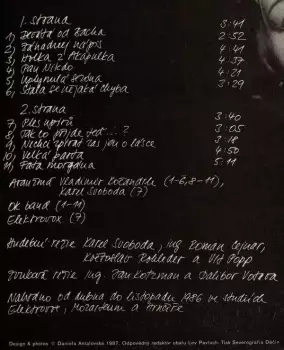 1. strana
1) Zkouta od Bacha 3:41
2) Záhadnej nápis 2:52
3) Holka z Akapulka 4:41
4) Pan Nikdo 4:37
5) Uplynulá sezóna 4:21
6) Stala se nějaká chyba 3:29
2. strana
7) Ples upírů 3:40
8) Jak to přijde teď...? 3:05
9) Nechci zpívat zas jen o lásce 3:18
10) Velká parta 4:50
11) Fata morgána 5:11
Aranžmá Vladimír Kočandrle (1-6, 8-11),
Karel Svoboda (7)
OK band (1-11)
Elektrovox (7)
Hudební režie Karel Svoboda, ing. Roman Lejnar,
Květoslav Rohleder a Vít Popp
Zvuková režie ing. Jan Kotzman a Dalibor Votava
Nahráno od dubna do listopadu 1986 ve studiích
Elektrovox, Mozarteum a Smečky
Design & photos © Daniela Antalovská 1987, Odpovědný redaktor obalu Lev Pavluch. Tisk Severografia Děčín